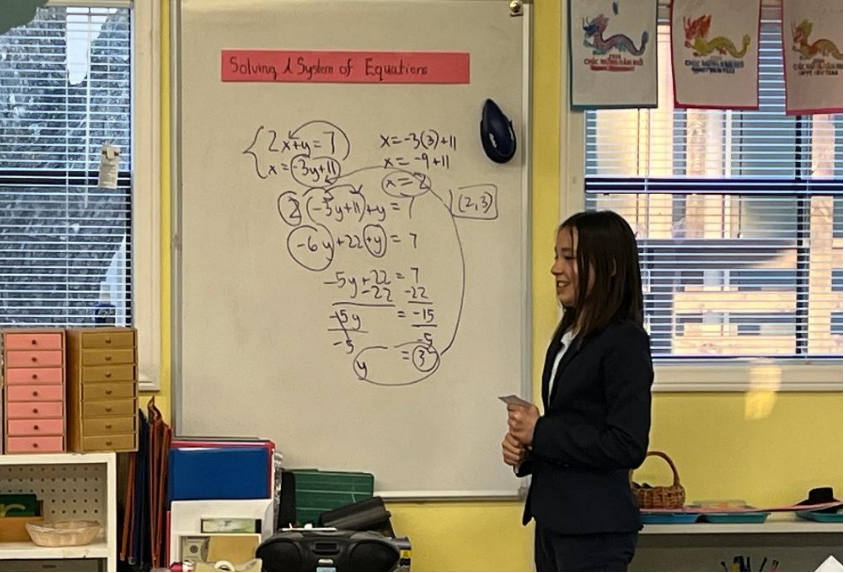 Solving A System of Equations
2x+y=7
x=-3y+11
2(-3y+11)+y=7
-6y+22+y=7
-5y+22=7
-22 -22
-5y = -15
-5 -5
y = 3
x=-3(3)+11
x=-9+11
x=2
(2,3)
CHÚC MỪNG NĂM MỚI
CHÚC MỪNG NĂM MỚI